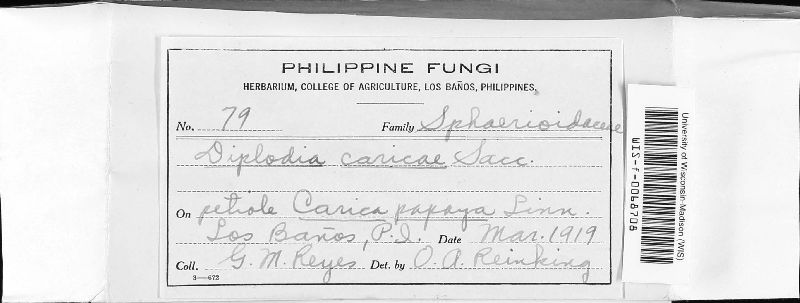 PHILIPPINE FUNGI
HERBARIUM, COLLEGE OF AGRICULTURE, LOS BAÑOS, PHILIPPINES.
No. 79 Family Sphaerioidaceae
Diplodia caricae Sacc.
On petiole Carica papaya Linn.
Los Baños, P.I. Date Mar. 1919
Coll. G. M. Reyes Det. by O. A. Reinking
3—672
University of Wisconsin-Madison (WIS)
WIS-f-0068708